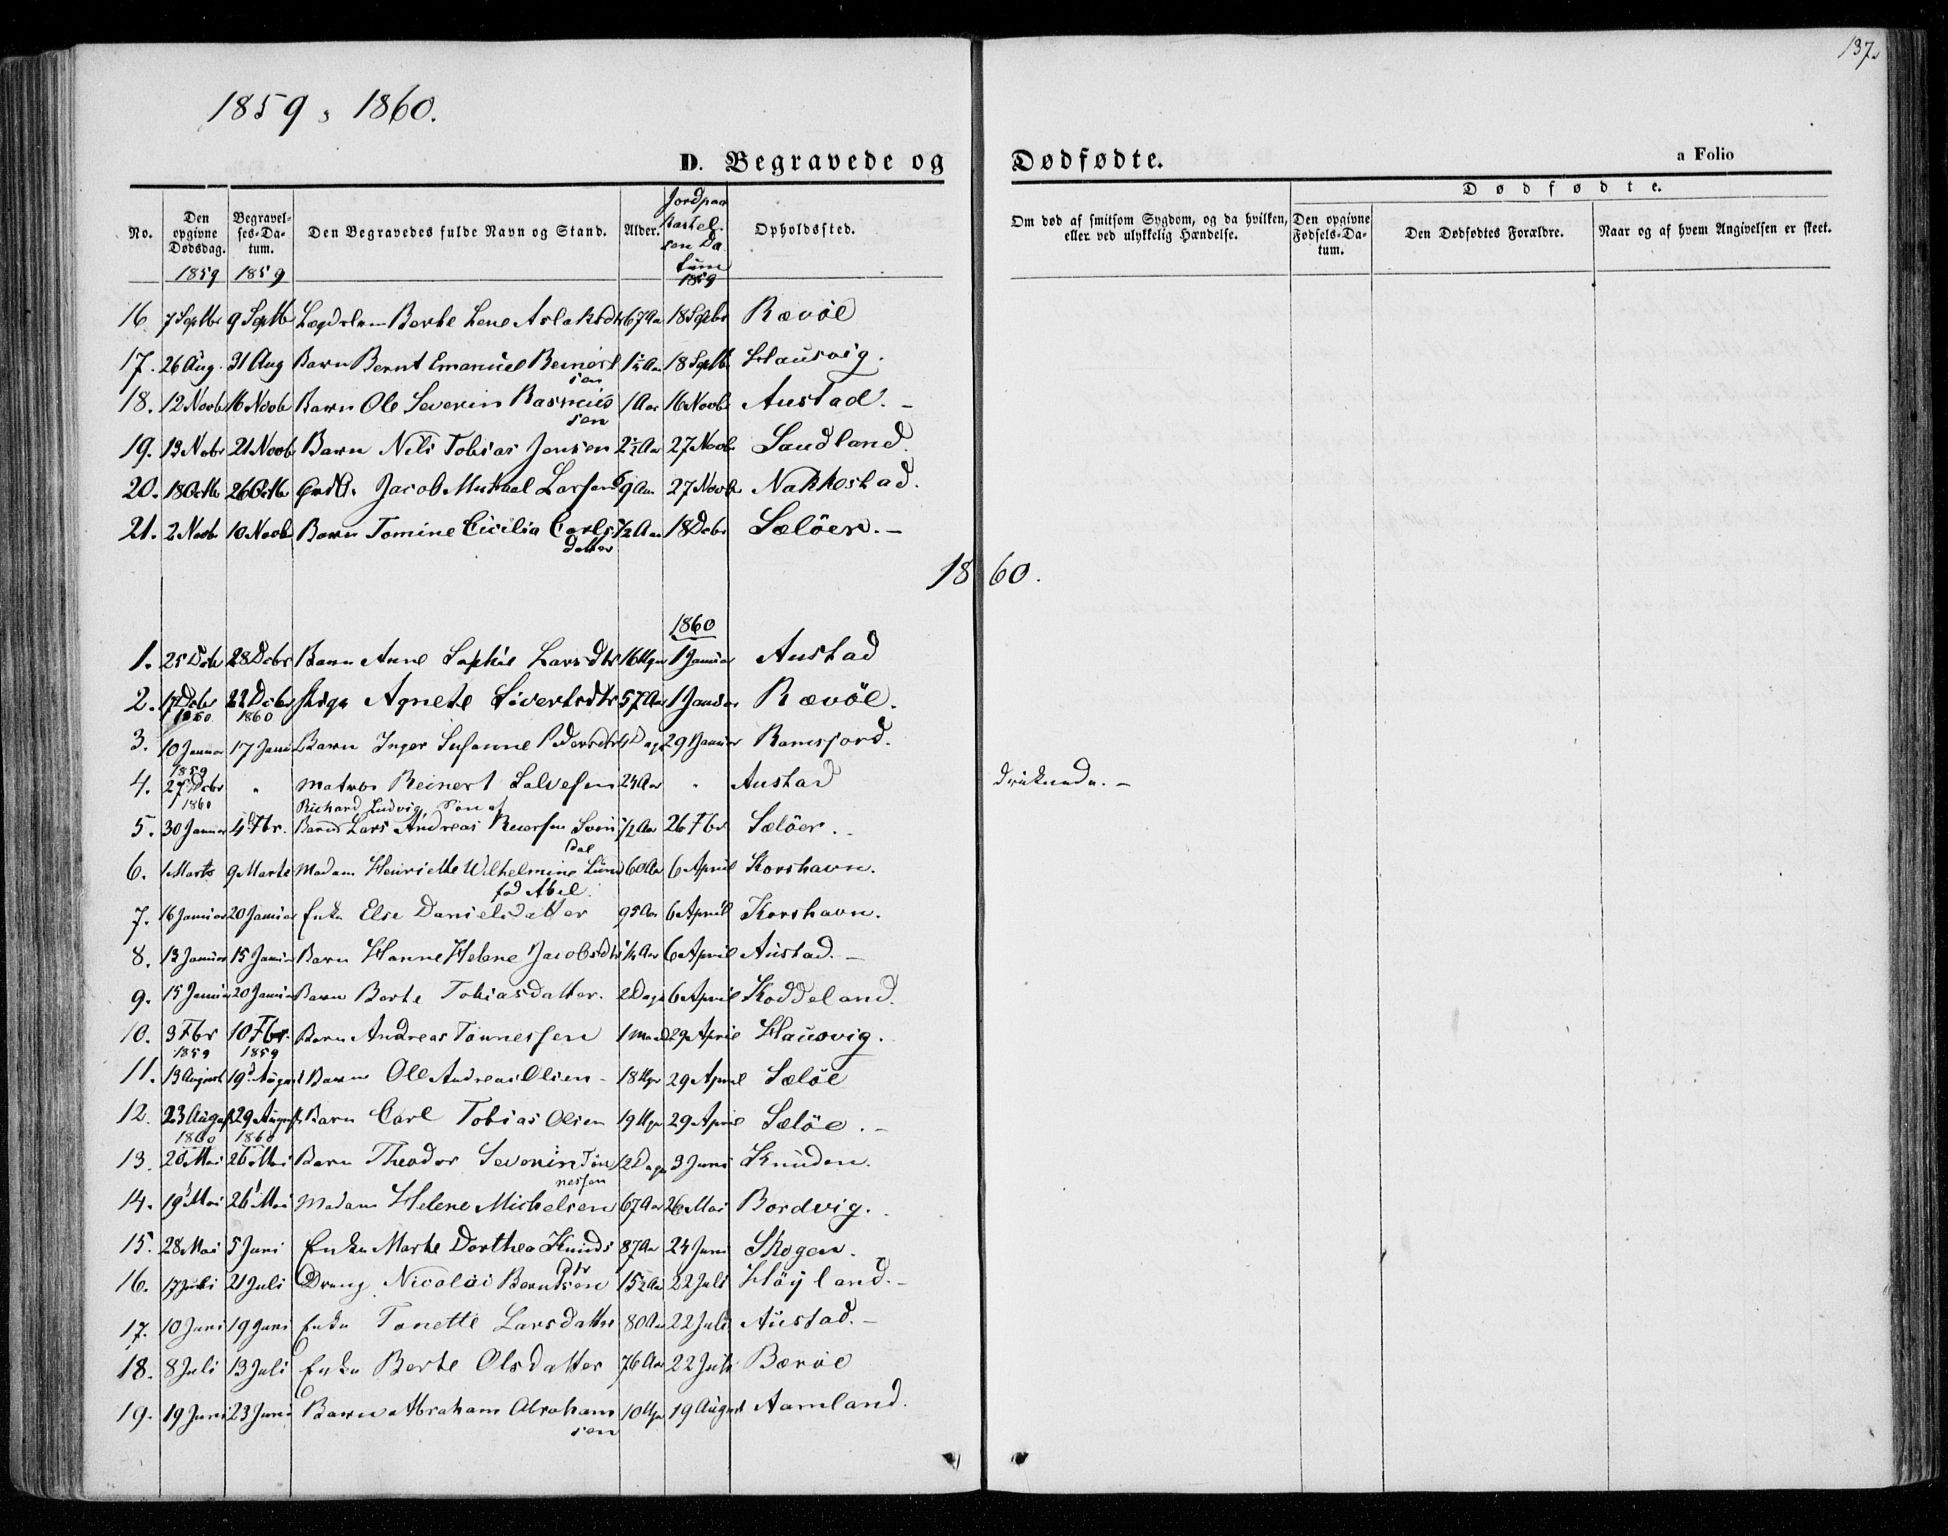 137.
1859 & 1860.
D. Begravede og Dødfødte.
a Folio
No.
Den opgivne Dødsdag.
Begravelses-Datum.
Den Begravedes fulde Navn og Stand.
Alder.
Jordpaakastelsen Datum
Opholdssted.
Om død af smitsom Sygdom, og da hvilken, eller ved ulykkelig Hændelse.
Dødfødte.
Den opgivne Fødsels-Datum.
Den Dødfødtes Forældre.
Naar og af hvem Angivelsen er skeet.
1859 1859 1859
16 7 Septbr 9 Septb Lægdslem Berte Lene Aslaksdtr 67 Aar 18 Sepbr Rævöe
17. 26 Aug. 31 Aug Barn Bernt Emanuel Reinertsen 1½ Aar 18 Septbr Hausvig.
18. 12 Novb 16 Novb Barn Ole Severin Rasmussen 1 Aar 16 Novb Austad. -
19. 13 Nobr 21 Novb Barn Nils Tobias Jensen 2½ Aar 27 Novb Sandland.
20. 18 Octb 26 Octb Jacob Larsen 27 Novb Nakkestad.
21. 2 Novb 10 Novb Barn Tomine Cicilia Carlsdatter ½ Aar 18 Dcbr Sælöer. -
1860.
1860
1. 25 Dcb 28 Dcbr Barn Anne Sophie Larsdtr 16 Uger 1 Januar Austad
2. 17 Dcbr 22 Dcbr Pige Agnete Sivertsdtr 57 Aar 1 Januar Rævöe.
1860 1860
3. 10 Januar 17 Janu Barn Inger Susanne Pedersdtr Dage 29 Januar Ramsfjord.
1859
4. 27 Dcbr " Matros Reinert Salvesen 24 Aar " Austad druknede. -
1860 Richard Ludvig, Søn af
5. 30 Januar 4 Fbr. Lars Andreas Reiersen Svindal ½ Aar 26 Fbr Sælöer. -
6. 1 Marts 9 Marts Madam Henriette Wilhelmine Lund fød Abel. 60 Aar 6 April Korshavn.
7. 16 Januar 20 Januar Enke Else Danielsdatter 95 Aar 6 April Korshavn.
8. 13 Januar 15 Januar Barn Hanne Helene Jacobsdtr ¼ Aar 6 April Austad. -
9. 15 Januar 20 Januar Barn Berte Tobiasdatter. 2 Dage 6 April Koddeland.
10. 3 Fbr 10 Fbr. Barn Andreas Tønnessen 1 Maaned 29 April Hausvig.
1859 1859
11. 13 August 19 August Barn Ole Andreas Olsen - 18 Uger 29 April Sælöe
12. 23 August 29 August Barn Carl Tobias Olsen 19 Uger 29 April Sælöe. -
1860 1860
13. 20 Mai 26 Mai Barn Theodor Severin Tønnessen 12 Dage 3 Juni Knuden.
14. 19 Mai 26 Mai Madam Helene Michelsen 67 Aar 26 Mai Bordvig.
15. 28 Mai 5 Juni Enke Marte Dorthea Knudsdtr 87 Aar 24 Juni Skogen.
16. 17 Juli 21 Juli Dreng Nicolai Berntsen 15½ Aar 22 Juli Höyland. -
17. 10 Juni 19 Juni Enke Tonette Larsdatter 80 Aar 22 Juli Austad. -
18. 8 Juli 13 Juli Enke Berte Olsdatter 76 Aar 22 Juli Bæröe
19. 19 Juni 23 Juni Barn Abraham Abrahamsen 10 Uger 19 August Aamland.